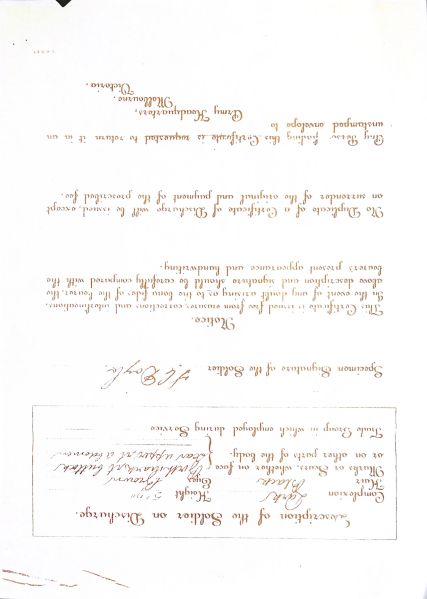 Description of the Soldier on Discharge.
Complexion Dark Height 5'
Hair Black Eyes Brown
Marks or Scars, whether on face
or on other parts of the body. Scar upper rt abdomen
Trade Group in which employed during Service
Specimen Signature of the Soldier J C Doyle
Notice.
This Certificate is issued free from erasures, corrections and interlineations.
In the event of any doubt arising as to the bona fides of the bearer, the
above description and signature should be carefully compared with the
bearer's present appearance and handwriting.
No Duplicate of a Certificate of Discharge will be issued, except
on surrender of the original and payment of the prescribed fee.
Any Person finding this Certificate is requested to return it in an
unstamped envelope to
Army Headquarters,
Melbourne,
Victoria.